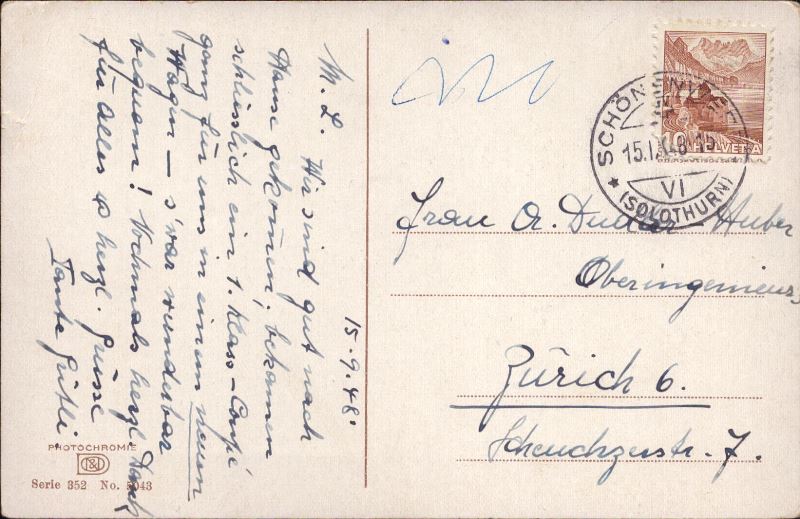 15.9.48.
M. L. Wir sind gut nach
Hause gekommen, bekamen
schliesslich ein 1. Klass-Coupé
ganz für uns in einem neuen
Wagen – s'war wunderbar
bequem! Nochmals herzl. Dank
für Alles & herzl. Grüsse
Tante
PHOTOCHROMIE
Serie 352 No. 5043
HELVETIA
SCHÖNENWERD
15.IX.48.15
VI
(SOLOTHURN)
Frau A. Huber
Oberingenieurs
Zürich 6.
Scheuchzerstr. 7.